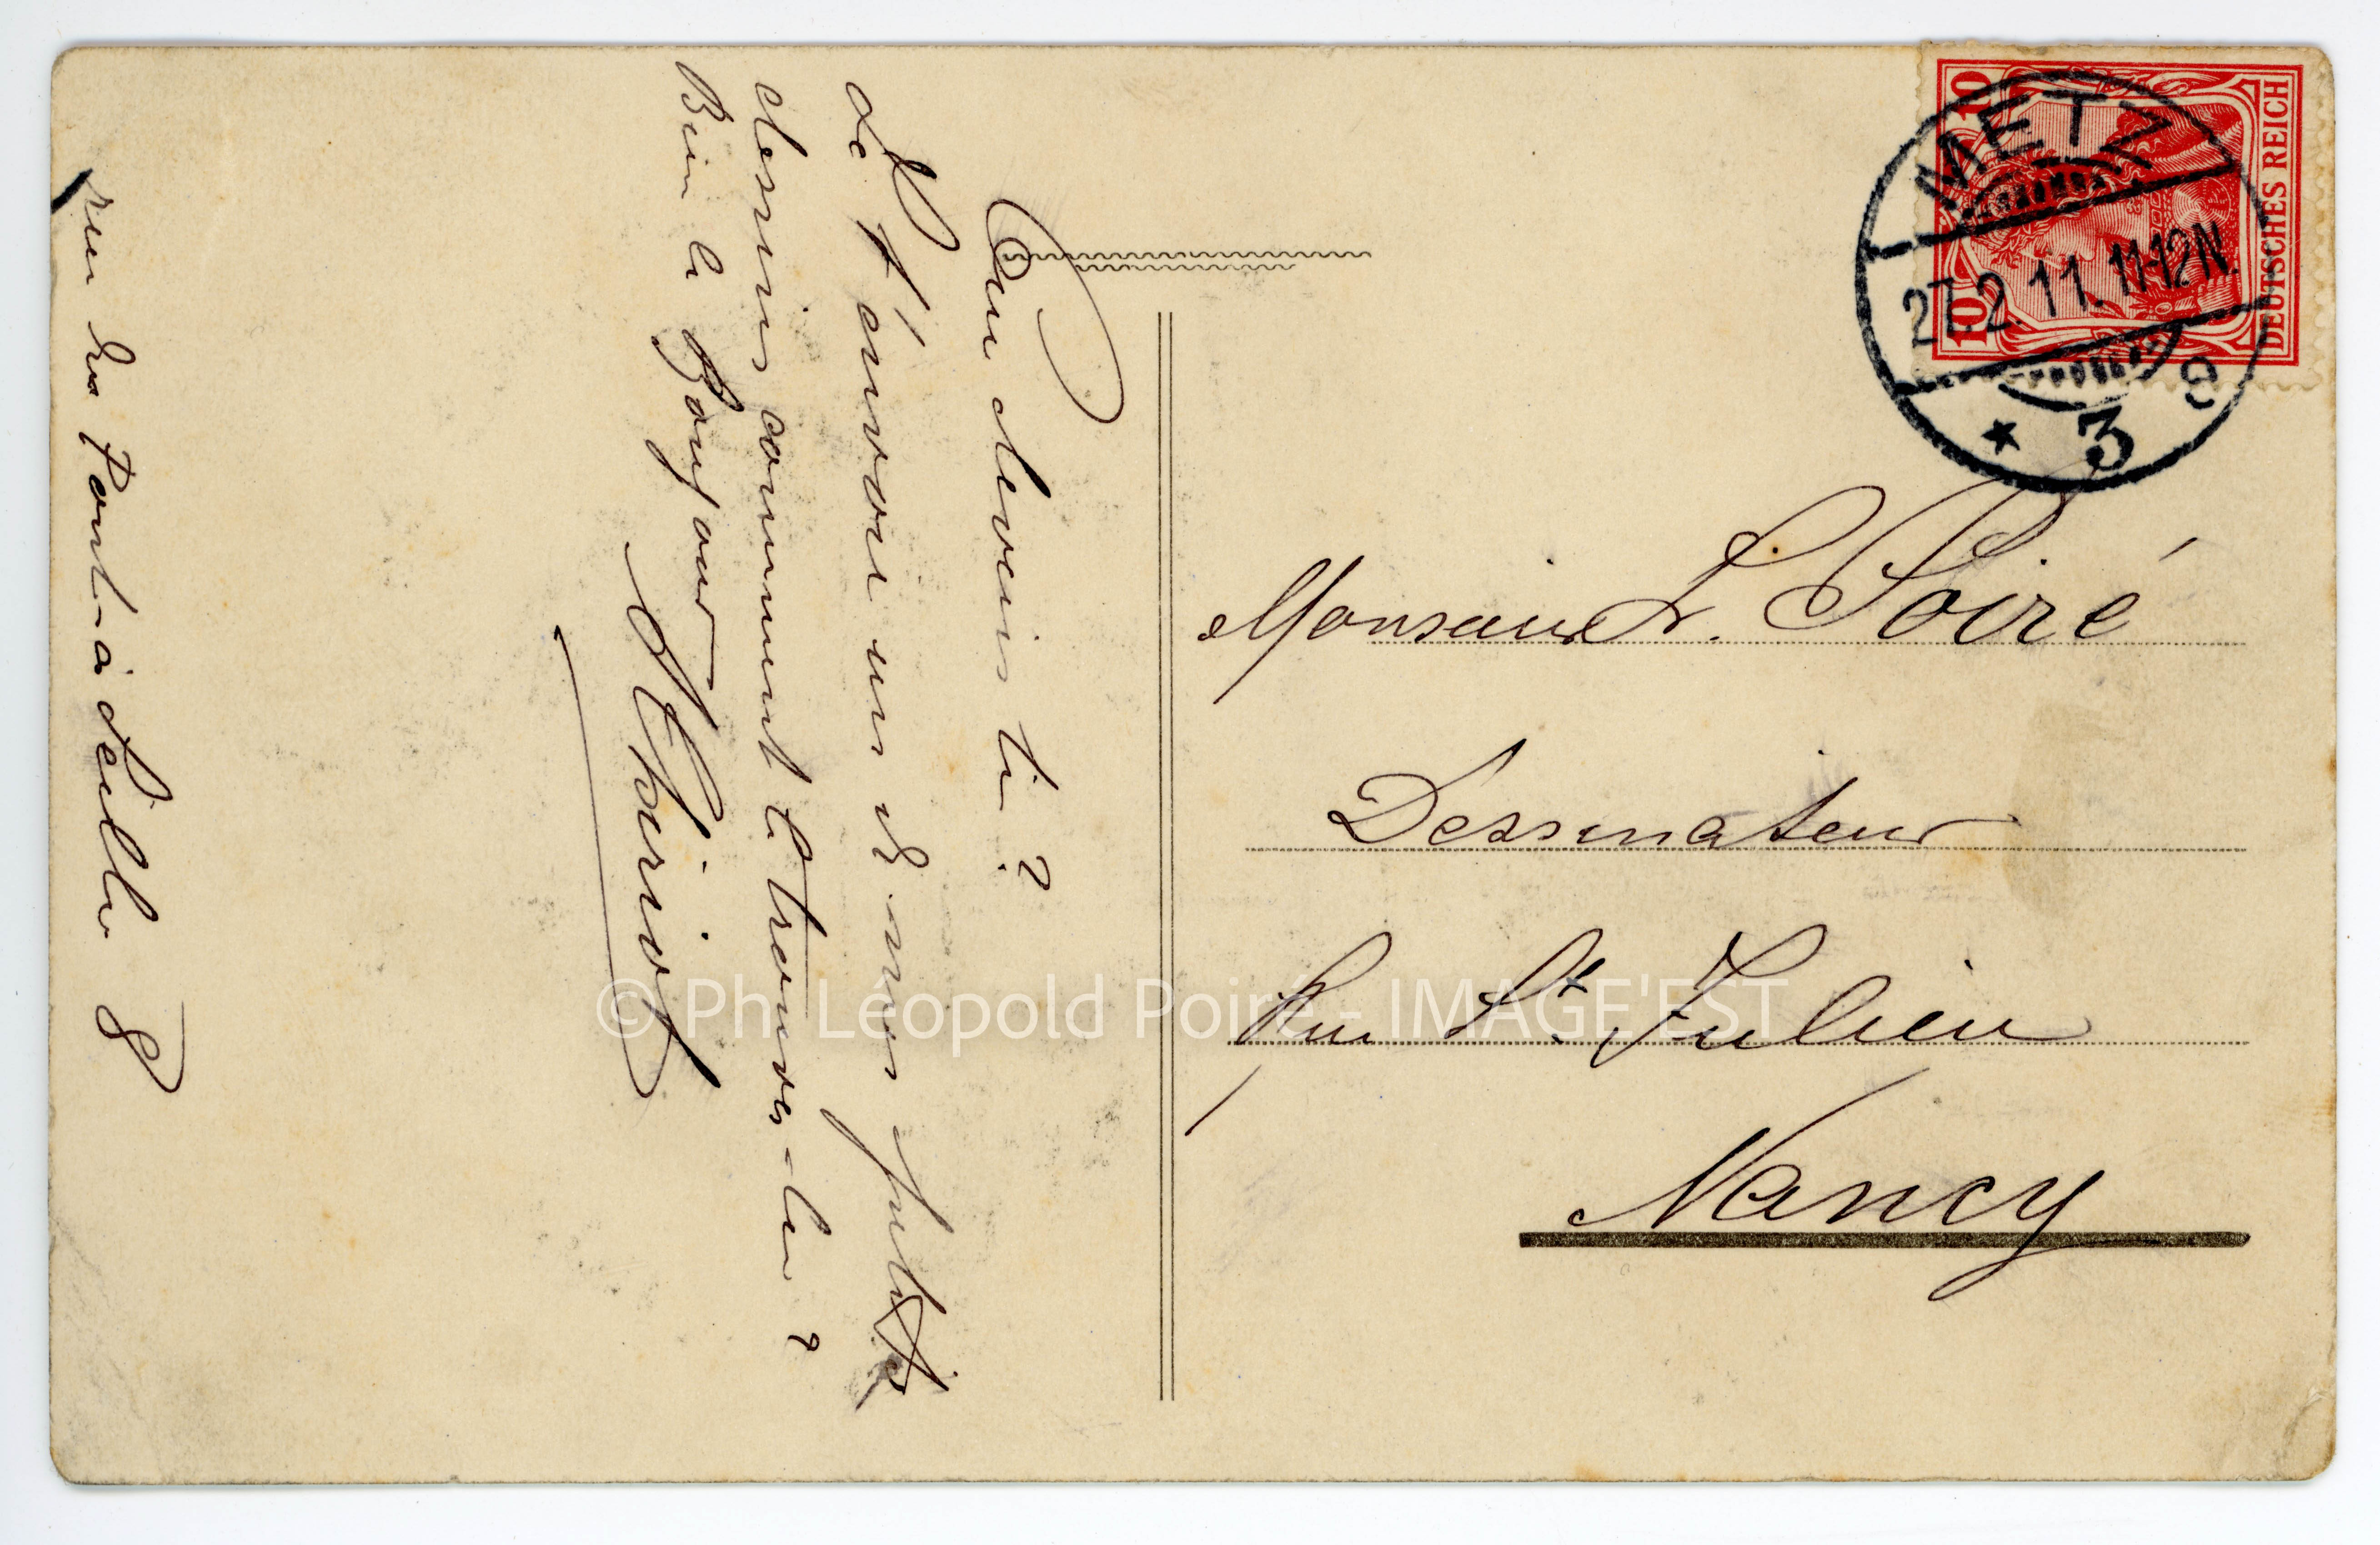 METZ
27.2.11.11-12N.
* 3
10
10
DEUTSCHES REICH
Monsieur L. Poiré
Dessinateur
Rue St. Julien
Nancy
Que deviens tu ?
Je t'envoie un de mes petits
dessins comment le trouves-tu ?
Bien le Bonjour
Thiriot
rue du Pont-à-Seille 8
© Ph. Léopold Poiré - IMAGE'EST